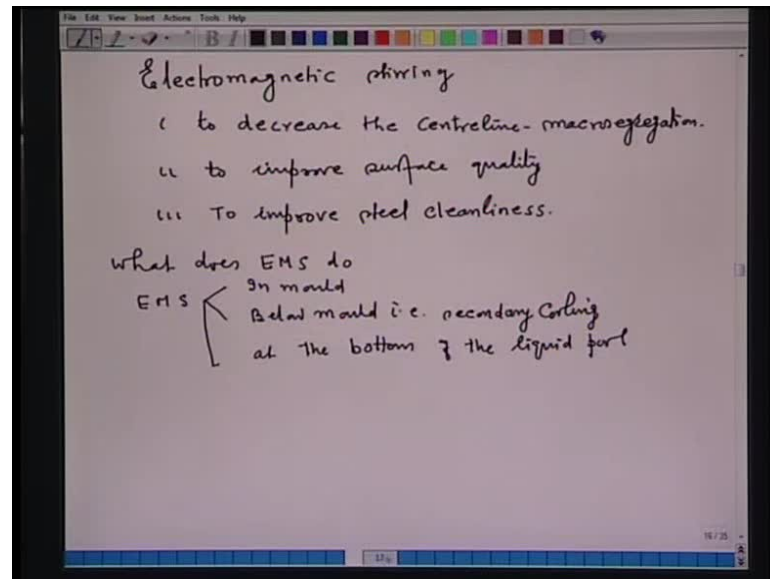 File Edit View Insert Actions Tools Help
B I
Electromagnetic stirring
i to decrease the centreline-macrosegregation.
ii to improve surface quality
iii To improve steel cleanliness.
what does EMS do
EMS
In mould
Below mould i.e. secondary Cooling
at the bottom of the liquid pool
16/35